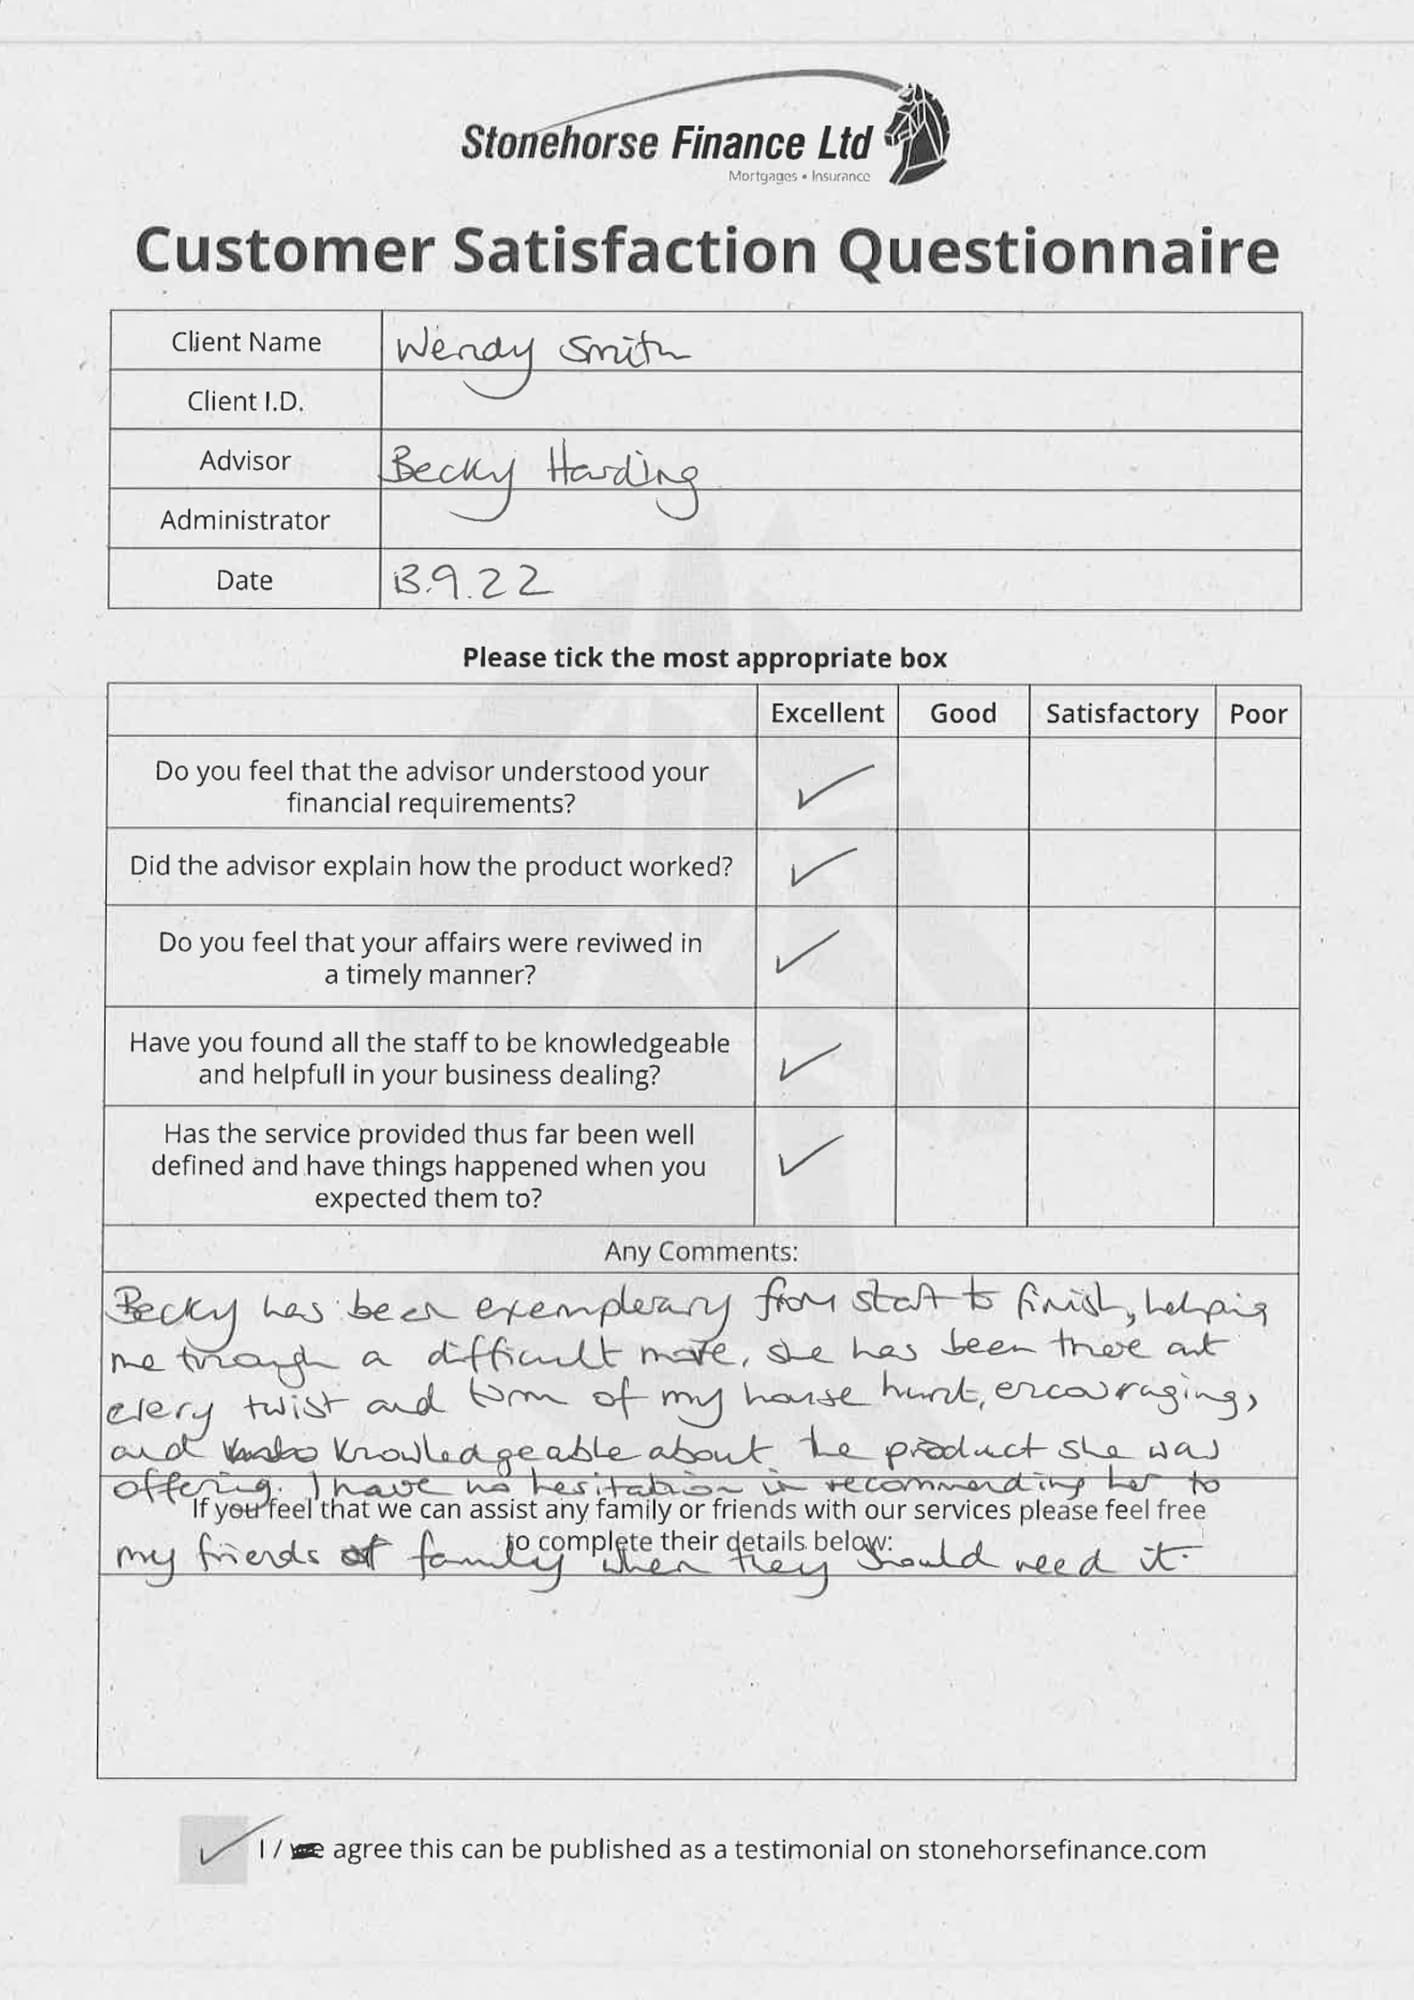 Stonehorse Finance Ltd
Mortgages • Insurance
Customer Satisfaction Questionnaire
Client Name Wendy Smith
Client I.D.
Advisor Becky Harding
Administrator
Date 13.9.22
Please tick the most appropriate box
Excellent Good Satisfactory Poor
Do you feel that the advisor understood your
financial requirements? ✓
Did the advisor explain how the product worked? ✓
Do you feel that your affairs were reviwed in
a timely manner? ✓
Have you found all the staff to be knowledgeable
and helpfull in your business dealing? ✓
Has the service provided thus far been well
defined and have things happened when you
expected them to? ✓
Any Comments:
Becky has been exemplerary from start to finish, helping
me through a difficult move, she has been there at
every twist and turn of my house hunt, encouraging,
and knowledgeable about the product she was
offering. I have no hesitation in recommending her to
If you feel that we can assist any family or friends with our services please feel free
to complete their details below:
my friends family when they should need it.
✓ I / we agree this can be published as a testimonial on stonehorsefinance.com